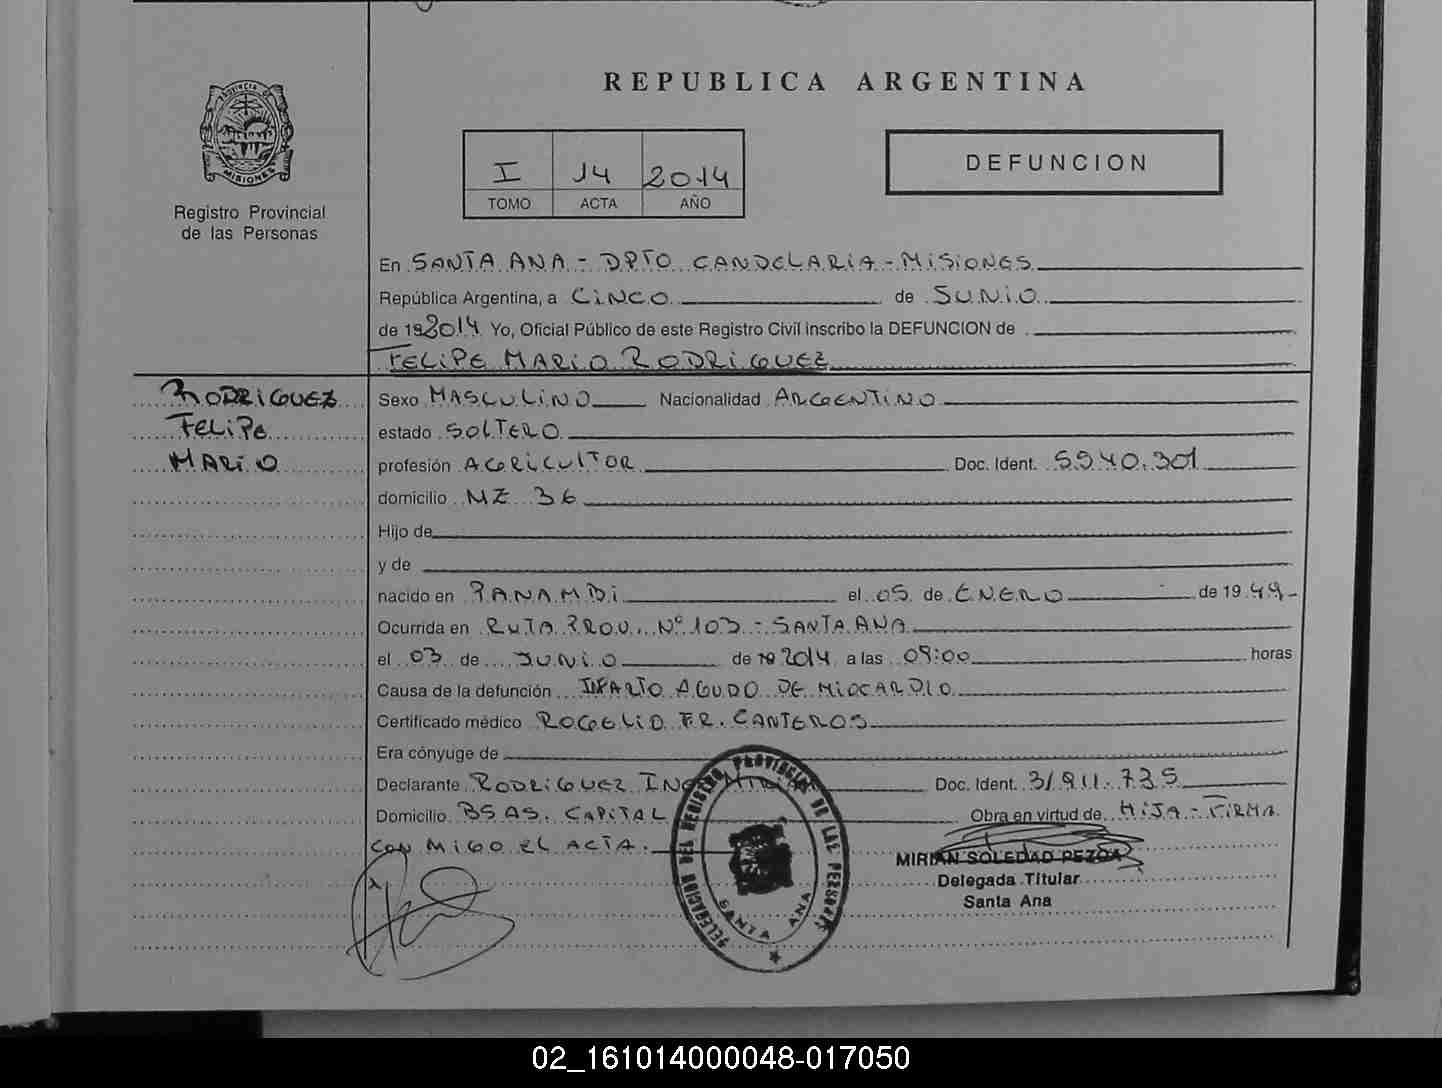 REPUBLICA ARGENTINA
PROVINCIA DE
MISIONES
Registro Provincial
de las Personas
I 14 2014
TOMO ACTA AÑO
DEFUNCION
En SANTA ANA - DPTO CANDELARIA - MISIONES
República Argentina, a CINCO de JUNIO
de 19 2014 Yo, Oficial Público de este Registro Civil inscribo la DEFUNCION de
FELIPE MARIO RODRIGUEZ
RODRIGUEZ
FELIPE
MARIO
Sexo MASCULINO Nacionalidad ARGENTINO
estado SOLTERO
profesión AGRICULTOR Doc. Ident. 5.940.301
domicilio MZ 36
Hijo de
y de
nacido en PANAMBI el 05 de ENERO de 1949-
Ocurrida en RUTA PROV. Nº 103 - SANTA ANA
el 03 de JUNIO de 19 2014 a las 09:00 horas
Causa de la defunción INFARTO AGUDO DE MIOCARDIO
Certificado médico ROGELIO FR. CANTEROS
Era cónyuge de
Declarante RODRIGUEZ Doc. Ident. 31.911.735
Domicilio BS AS. CAPITAL Obra en virtud de HIJA - FIRMA
CON MIGO EL ACTA.
DELEGACION DEL REGISTRO PROVINCIAL DE LAS PERSONAS
SANTA ANA
MIRIAN SOLEDAD PEZOA
Delegada Titular
Santa Ana
02_161014000048-017050